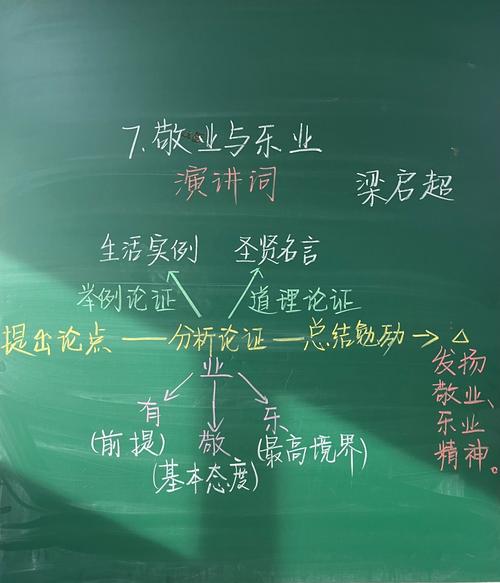 7.敬业与乐业
演讲词 梁启超
生活实例 圣贤名言
举例论证 道理论证
提出论点 — 分析论证 — 总结勉励 → △
业
有 敬 乐
(前提) (基本态度) (最高境界)
发扬
敬业、
乐业
精神。